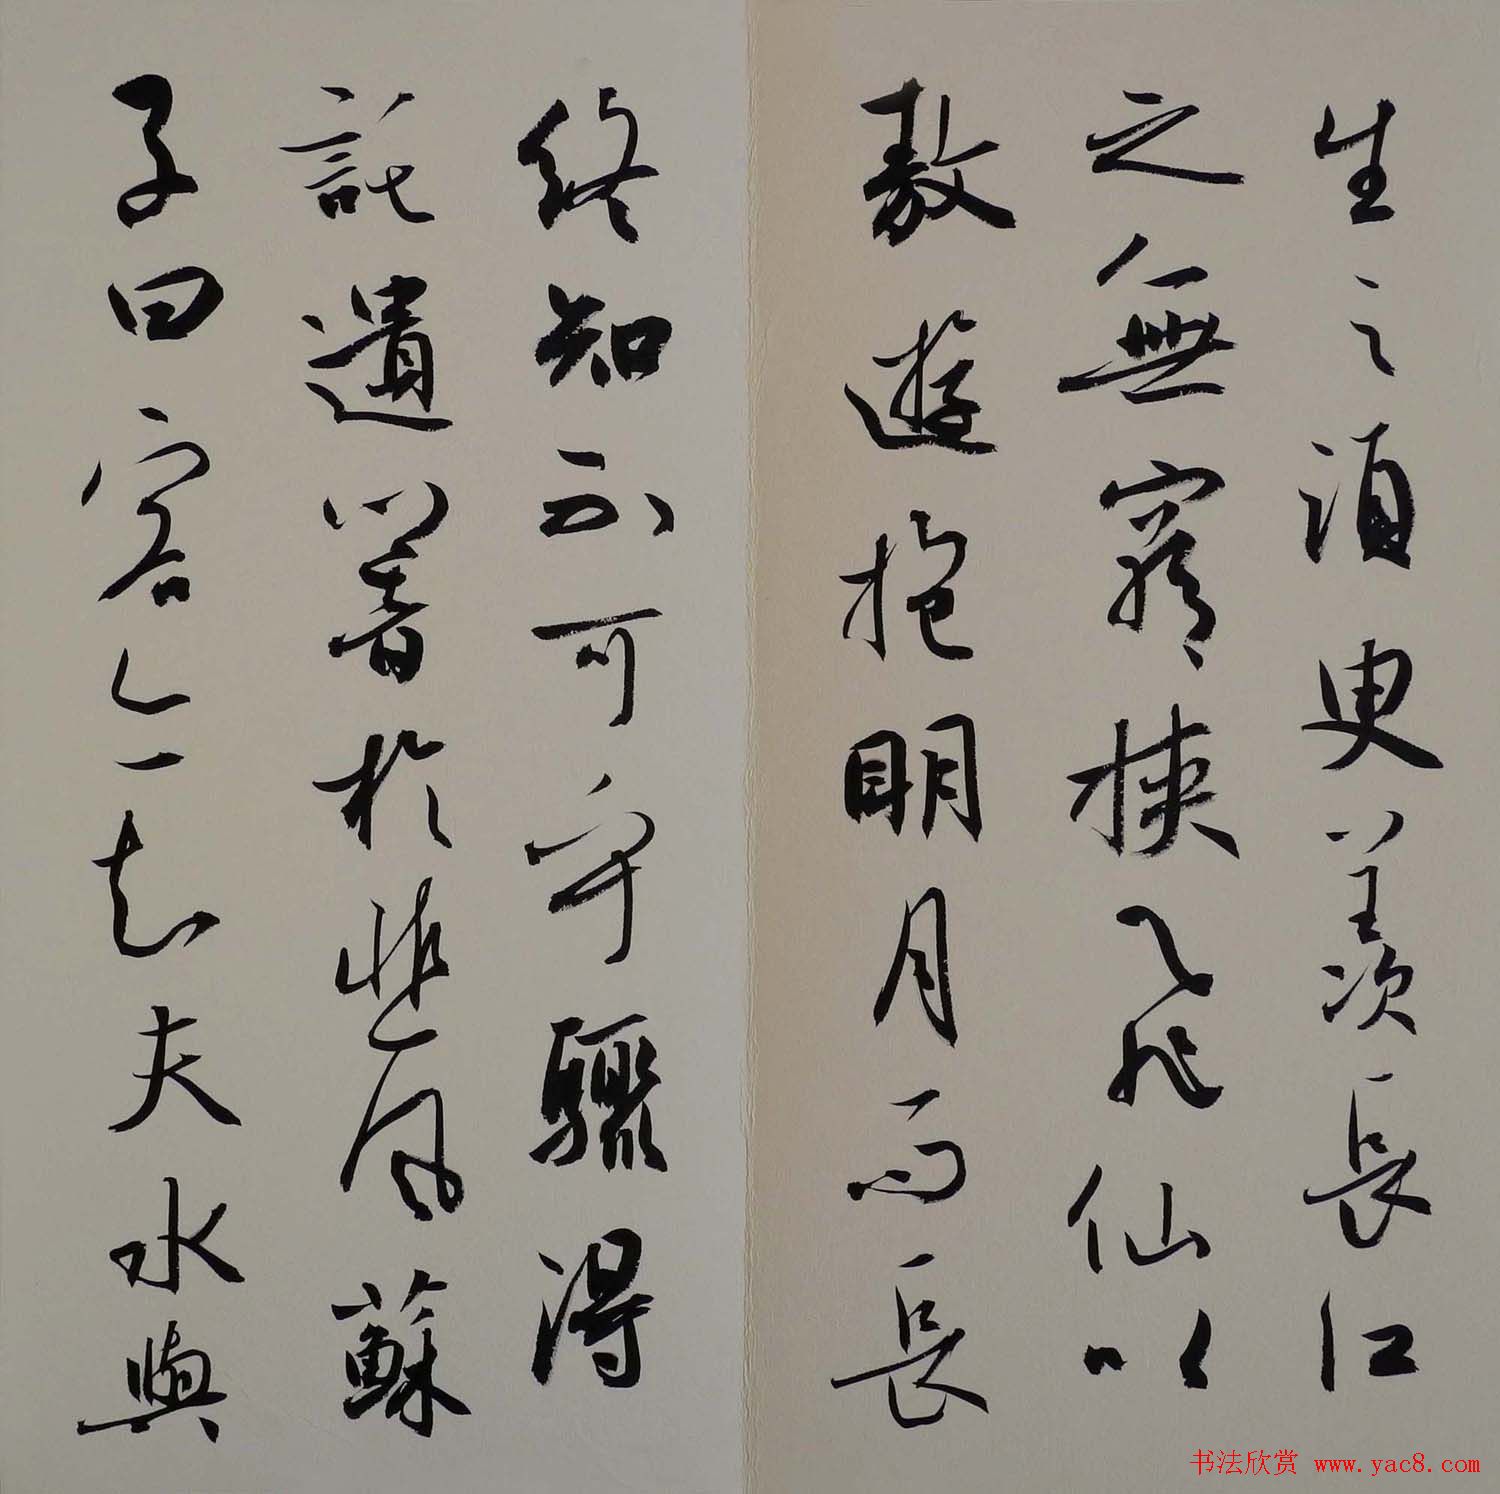 生之須臾羨長江
之無窮挾飛仙以
敖遊抱明月而長
終知不可乎驟得
託遺響於悲風蘇
子曰客亦知夫水與
书法欣赏 www.yac8.com